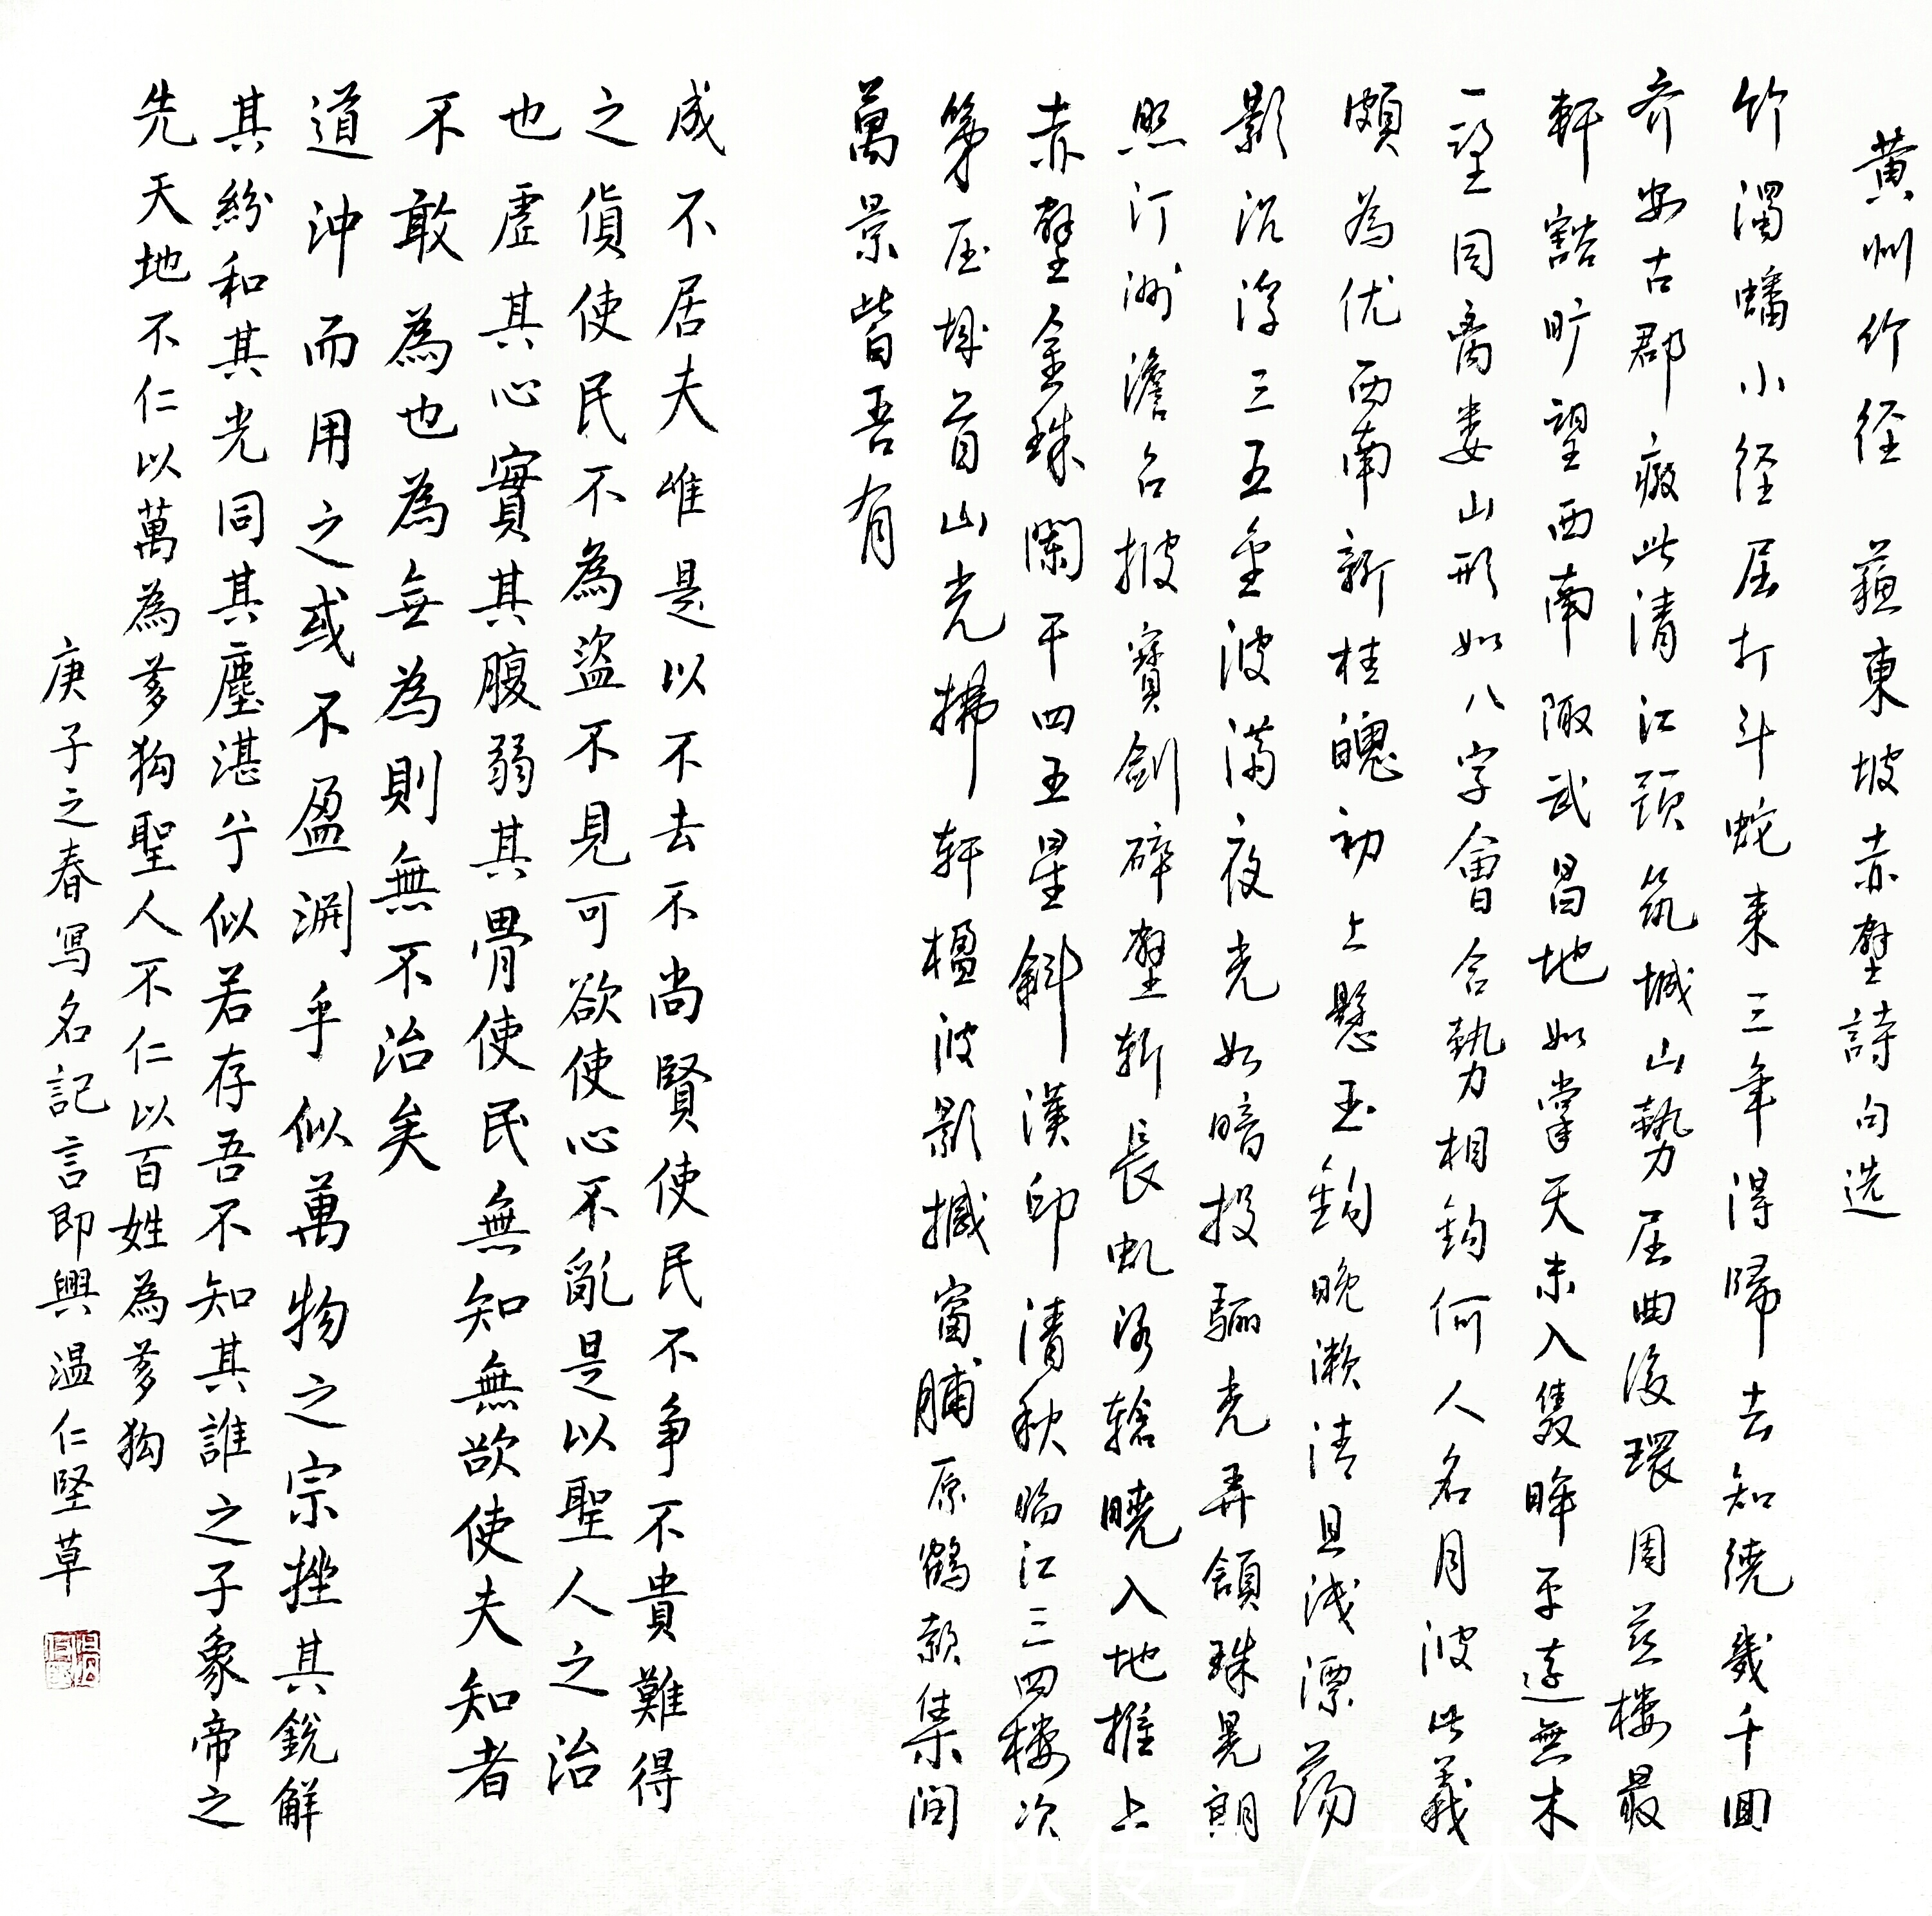 黄州竹径 蘓東坡赤壁詩句选
竹濁蟠小径屈打斗蛇来三年得歸去知繞幾千囬
齐安古郡癈此清江頭筑城山勢屈曲復環周兹樓最
軒豁旷望西南陬武昌地如掌天末入隻眸平遠無木
一望同离娄山形如八字會合勢相鈎何人名月波此義
頗為优西南新桂魄初上懸玉鈎晚濑清且浅漂荡
影沉浮三五金波满夜光如暗投骊光弄頷珠晃朗
照汀洲澹台披寳劍碎壁斬長虬洛轮曉入地推上
赤壁金珠闌干四五星斜漢印清秋临江三四樓次
第压城首山光拂軒楹波影撼窗牖原鶴款集闰
萬景皆吾有
成不居夫唯是以不去不尚賢使民不争不貴難得
之貨使民不為盜不見可欲使心不亂是以聖人之治
也虛其心實其腹弱其骨使民無知無欲使夫知者
不敢為也為無為則無不治矣
道沖而用之或不盈淵乎似萬物之宗挫其銳解
其紛和其光同其塵湛兮似若存吾不知其誰之子象帝之
先天地不仁以萬為芻狗聖人不仁以百姓為芻狗
庚子之春寫名記言即興温仁堅草
快传号/艺术大